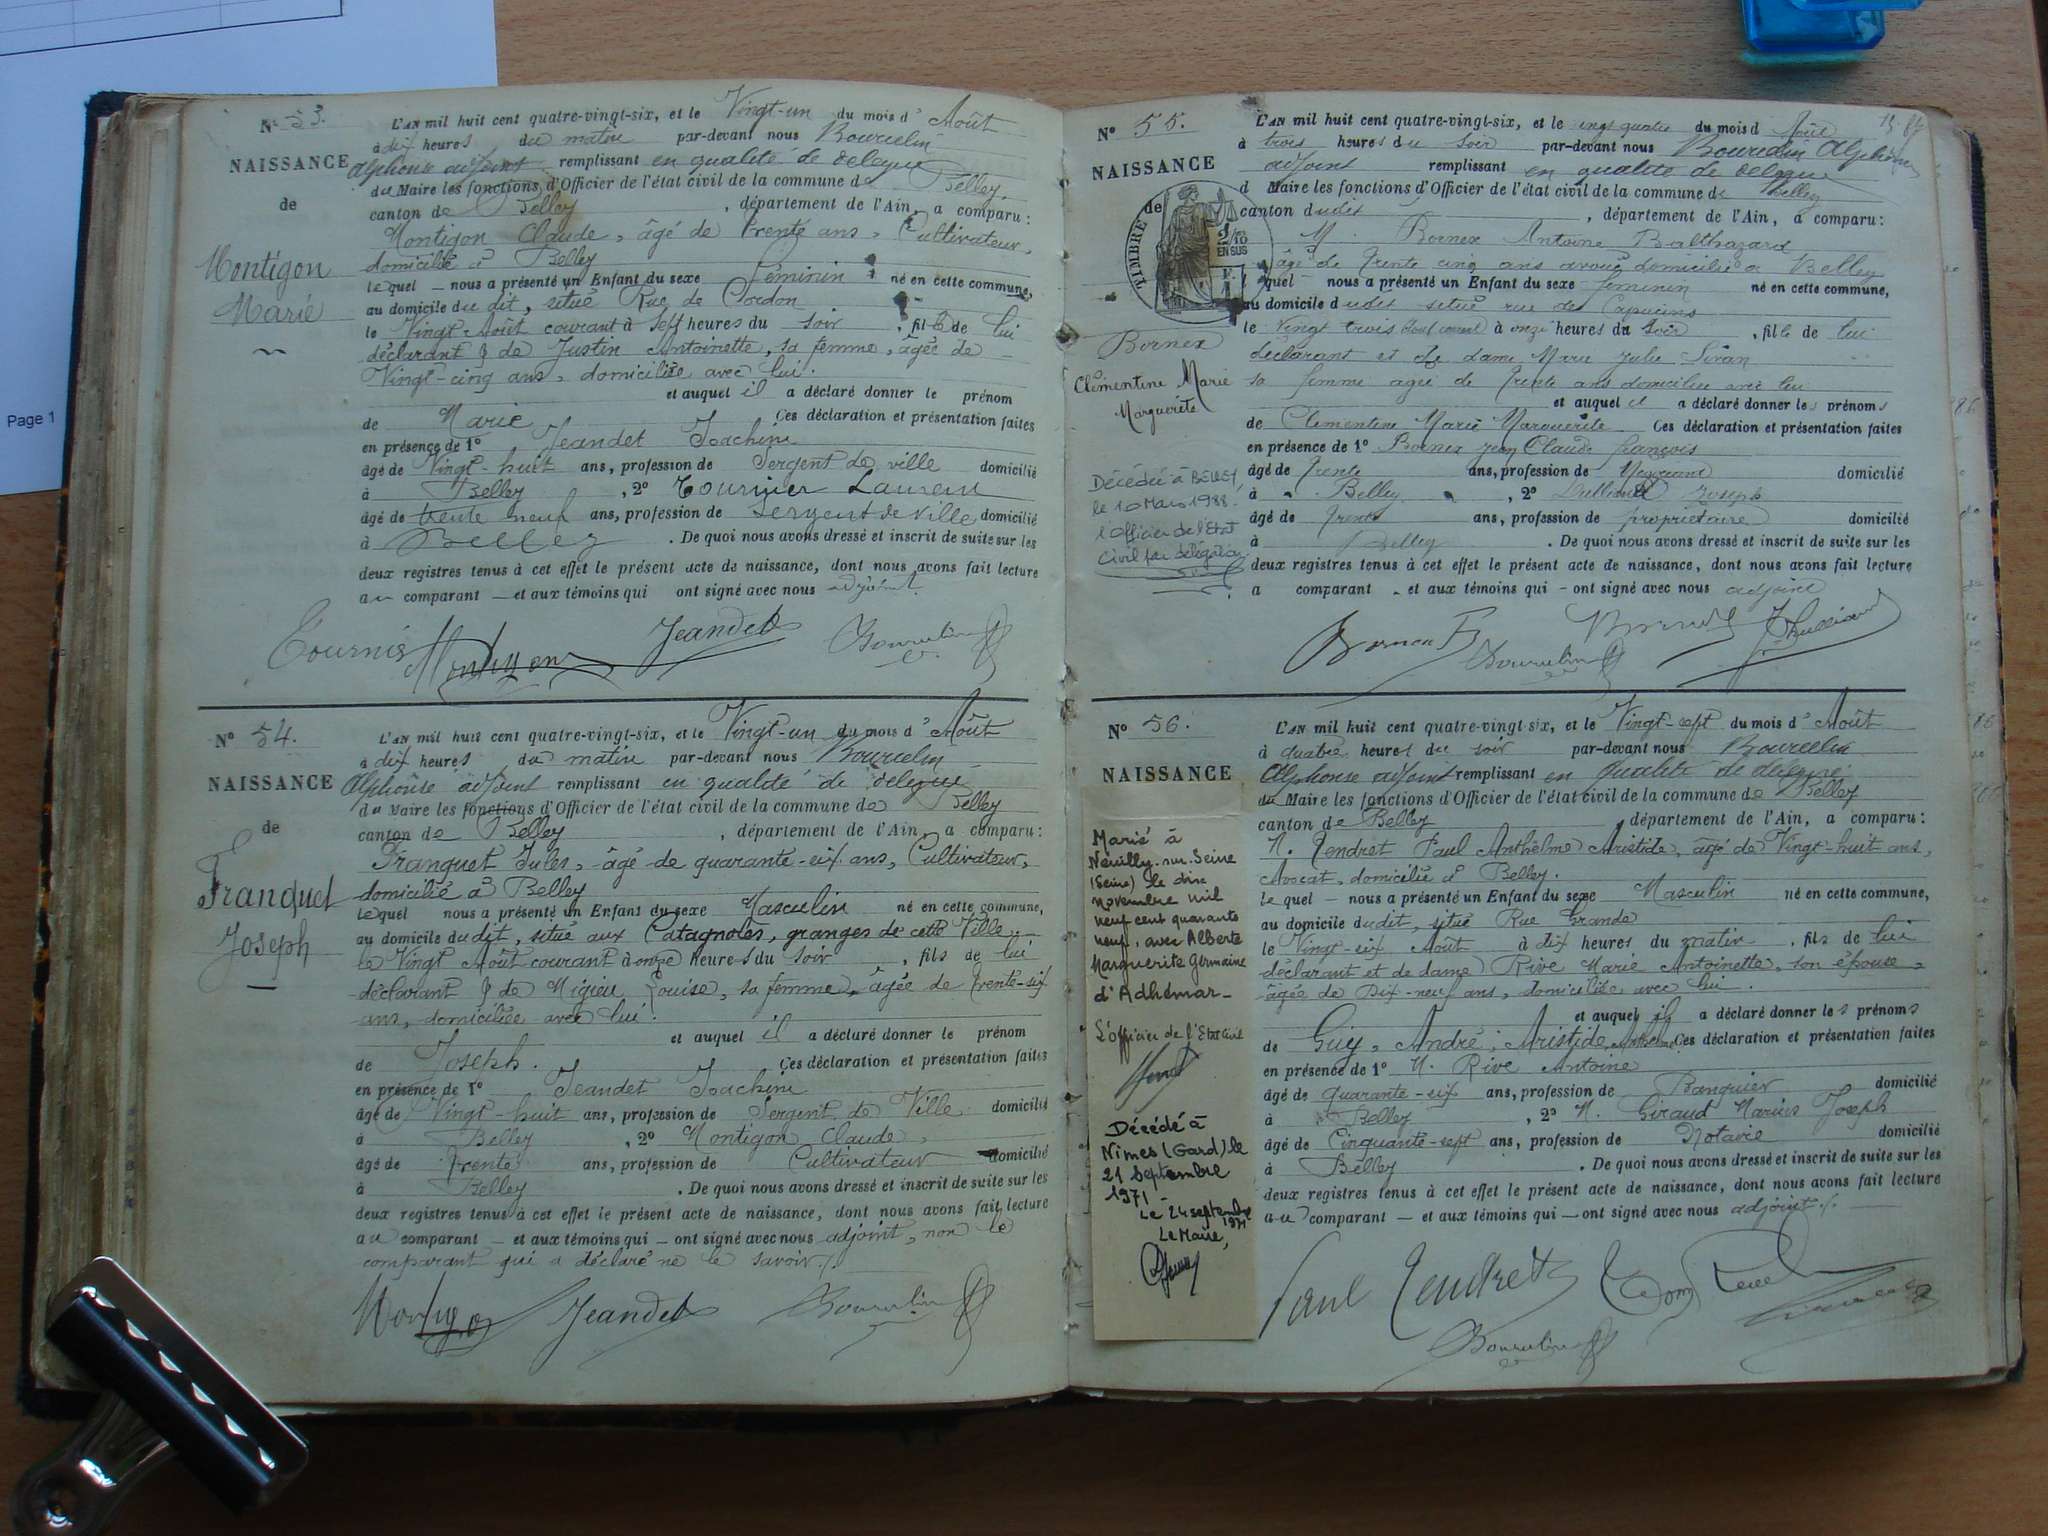 Page 1
N° 53.
NAISSANCE
de
Montigon
Marie
L'AN mil huit cent quatre-vingt-six, et le Vingt-un du mois d'Août
à dix heures du matin par-devant nous Bourcelin
Alphonse adjoint remplissant en qualité de délégué
du Maire les fonctions d'Officier de l'état civil de la commune de Belley
canton de Belley, département de l'Ain, a comparu:
Montigon Claude, âgé de trente ans, Cultivateur,
domicilié à Belley
lequel — nous a présenté un Enfant du sexe féminin né en cette commune,
au domicile du dit, situé Rue de Cordon
le Vingt Août courant à Sept heures du soir, fille de lui
déclarant & de Justin Antoinette, sa femme, âgée de
Vingt-cinq ans, domiciliée avec lui.
et auquel il a déclaré donner le prénom
de Marie Ces déclaration et présentation faites
en présence de 1° Jeandet Joachim
âgé de Vingt-huit ans, profession de Sergent de ville domicilié
à Belley, 2° Tournier Laurent
âgé de trente neuf ans, profession de Sergent de Ville domicilié
à Belley. De quoi nous avons dressé et inscrit de suite sur les
deux registres tenus à cet effet le présent acte de naissance, dont nous avons fait lecture
au comparant — et aux témoins qui ont signé avec nous adjoint.
Tournier Montigon Jeandet Bourcelin
N° 54.
NAISSANCE
de
Franquet
Joseph
L'AN mil huit cent quatre-vingt-six, et le Vingt-un du mois d'Août
à dix heures du matin par-devant nous Bourcelin
Alphonse adjoint remplissant en qualité de délégué
du Maire les fonctions d'Officier de l'état civil de la commune de Belley
canton de Belley, département de l'Ain, a comparu:
Franquet Jules, âgé de quarante-six ans, Cultivateur,
domicilié à Belley
lequel nous a présenté un Enfant du sexe Masculin né en cette commune,
au domicile du dit, situé aux Catagnoles, granges de cette Ville
le Vingt Août courant à onze heures du soir, fils de lui
déclarant & de Migieu Louise, sa femme, âgée de trente-six
ans, domiciliée avec lui.
et auquel il a déclaré donner le prénom
de Joseph. Ces déclaration et présentation faites
en présence de 1° Jeandet Joachim
âgé de Vingt-huit ans, profession de Sergent de Ville domicilié
à Belley, 2° Montigon Claude,
âgé de trente ans, profession de Cultivateur domicilié
à Belley. De quoi nous avons dressé et inscrit de suite sur les
deux registres tenus à cet effet le présent acte de naissance, dont nous avons fait lecture
au comparant — et aux témoins qui — ont signé avec nous adjoint, non le
comparant qui a déclaré ne le savoir.
Jeandet Bourcelin
N° 55.
NAISSANCE
de
TIMBRE
2/10
EN SUS
Bornex
Clémentine Marie
Marguerite
Décédée à BELLEY
le 10 Mars 1988.
l'Officier de l'Etat
Civil par délégation
L'AN mil huit cent quatre-vingt-six, et le vingt quatre du mois d Août
à trois heures du soir par-devant nous Bourcelin Alphonse
adjoint remplissant en qualité de délégué
d Maire les fonctions d'Officier de l'état civil de la commune de Belley
canton dudit, département de l'Ain, a comparu:
M. Bornex Antoine Balthazard
âgé de trente cinq ans avoué domicilié à Belley
lequel — nous a présenté un Enfant du sexe féminin né en cette commune,
au domicile dudit situé rue des Capucins
le vingt trois Août courant à onze heures du soir, fille de lui
déclarant et de dame Marie Julie Sivan
sa femme agée de trente ans domiciliée avec lui
et auquel il a déclaré donner les prénoms
de Clémentine Marie Marguerite Ces déclaration et présentation faites
en présence de 1° Bornex Jean Claude François
âgé de trente ans, profession de Négociant domicilié
à Belley, 2° Joseph
âgé de trente ans, profession de propriétaire domicilié
à Belley. De quoi nous avons dressé et inscrit de suite sur les
deux registres tenus à cet effet le présent acte de naissance, dont nous avons fait lecture
a comparant — et aux témoins qui — ont signé avec nous adjoint
Bourcelin
N° 56.
NAISSANCE
Marié à
Neuilly-sur-Seine
(Seine) le dix
novembre mil
neuf cent quarante
neuf, avec Alberte
Marguerite Germaine
d'Adhémar_
L'officier de l'Etat Civil
Décédé à
Nîmes (Gard) le
21 septembre
1971
Le 24 septembre
1971
Le Maire,
L'AN mil huit cent quatre-vingt-six, et le Vingt-sept du mois d'Août
à quatre heures du soir par-devant nous Bourcelin
Alphonse adjoint remplissant en qualité de délégué
du Maire les fonctions d'Officier de l'état civil de la commune de Belley
canton de Belley, département de l'Ain, a comparu:
M. Tendret Paul Anthelme Aristide, âgé de Vingt-huit ans,
Avocat, domicilié à Belley.
lequel — nous a présenté un Enfant du sexe Masculin né en cette commune,
au domicile dudit, situé Rue Grande
le Vingt-six Août à dix heures du matin, fils de lui
déclarant et de dame Rive Marie Antoinette, son épouse,
âgée de Dix-neuf ans, domiciliée avec lui.
et auquel il a déclaré donner les prénoms
de Guy, André, Aristide, Anthelme Ces déclaration et présentation faites
en présence de 1° M. Rive Antoine
âgé de quarante-six ans, profession de Banquier domicilié
à Belley, 2° M. Giraud Marius Joseph
âgé de Cinquante-sept ans, profession de Notaire domicilié
à Belley. De quoi nous avons dressé et inscrit de suite sur les
deux registres tenus à cet effet le présent acte de naissance, dont nous avons fait lecture
au comparant — et aux témoins qui — ont signé avec nous adjoint.
Paul Tendret
Bourcelin